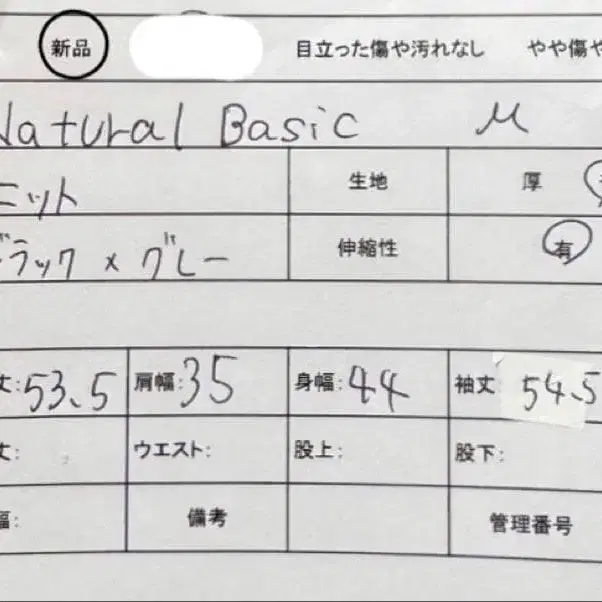 新品 目立った傷や汚れなし やや傷や
Natural Basic M
ニット 生地 厚
ブラック×グレー 伸縮性 有
丈:53.5 肩幅:35 身幅:44 袖丈:54.5
丈: ウエスト: 股上: 股下:
幅: 備考 管理番号